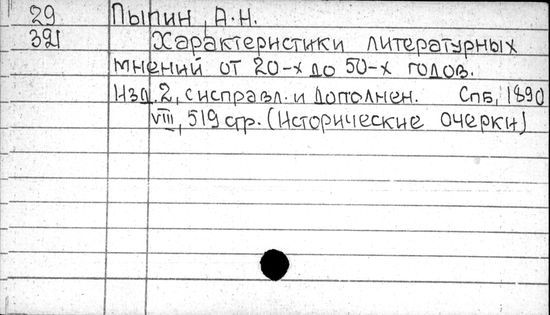 29 Пыпин, А.Н.
321 Характеристики литературных
мнений от 20-х до 50-х годов.
Изд. 2, с исправл. и дополнен. Спб, 1890
VIII, 519 стр. (Исторические очерки)